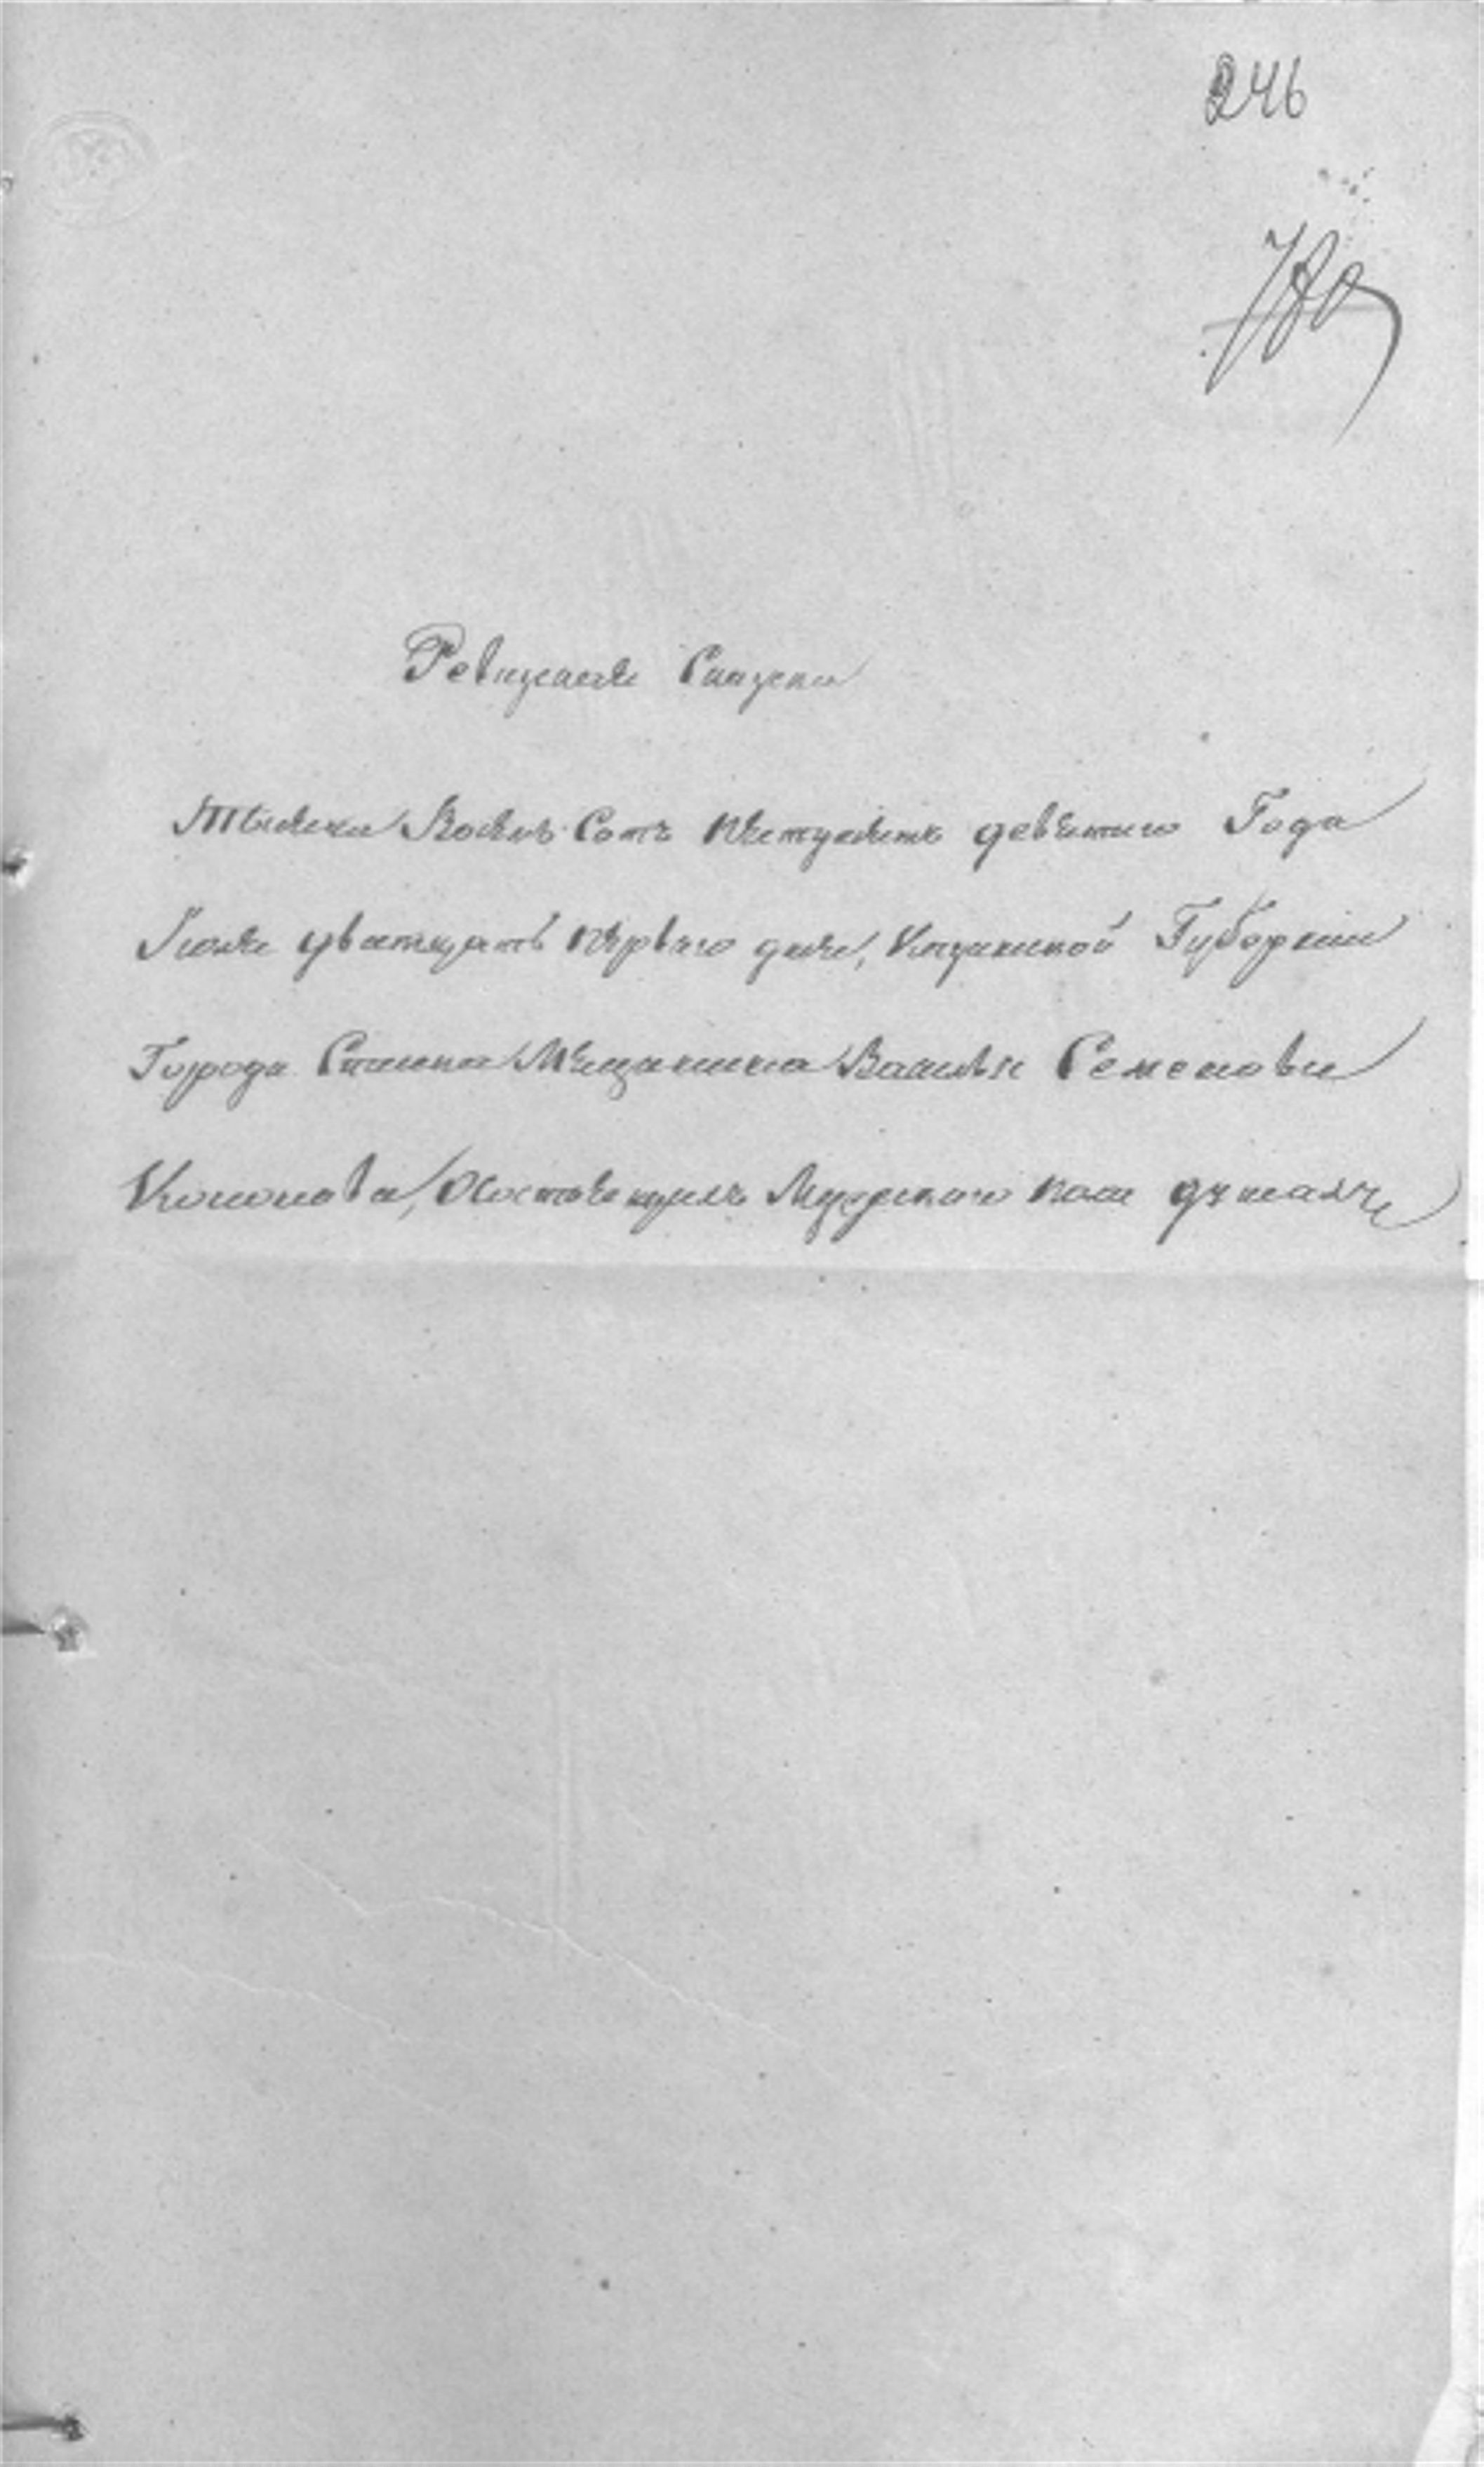 246
Ревизская Сказка
Тысяча Восемь Сотъ Пятьдесятъ девятаго Года
Июня дватцать первого дня, Казанской Губернии
Города Спаска Мещанина Василья Семенова
Кононова, Состоящихъ Мужского пола душахъ